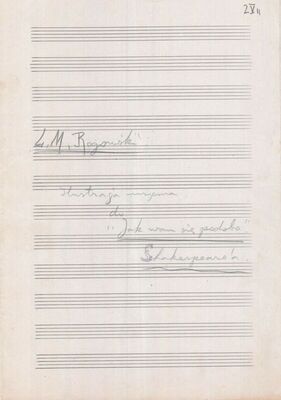 L. M. Rogowski
Ilustracja muzyczna
do
"Jak wam się podoba"
Shakespeare'a